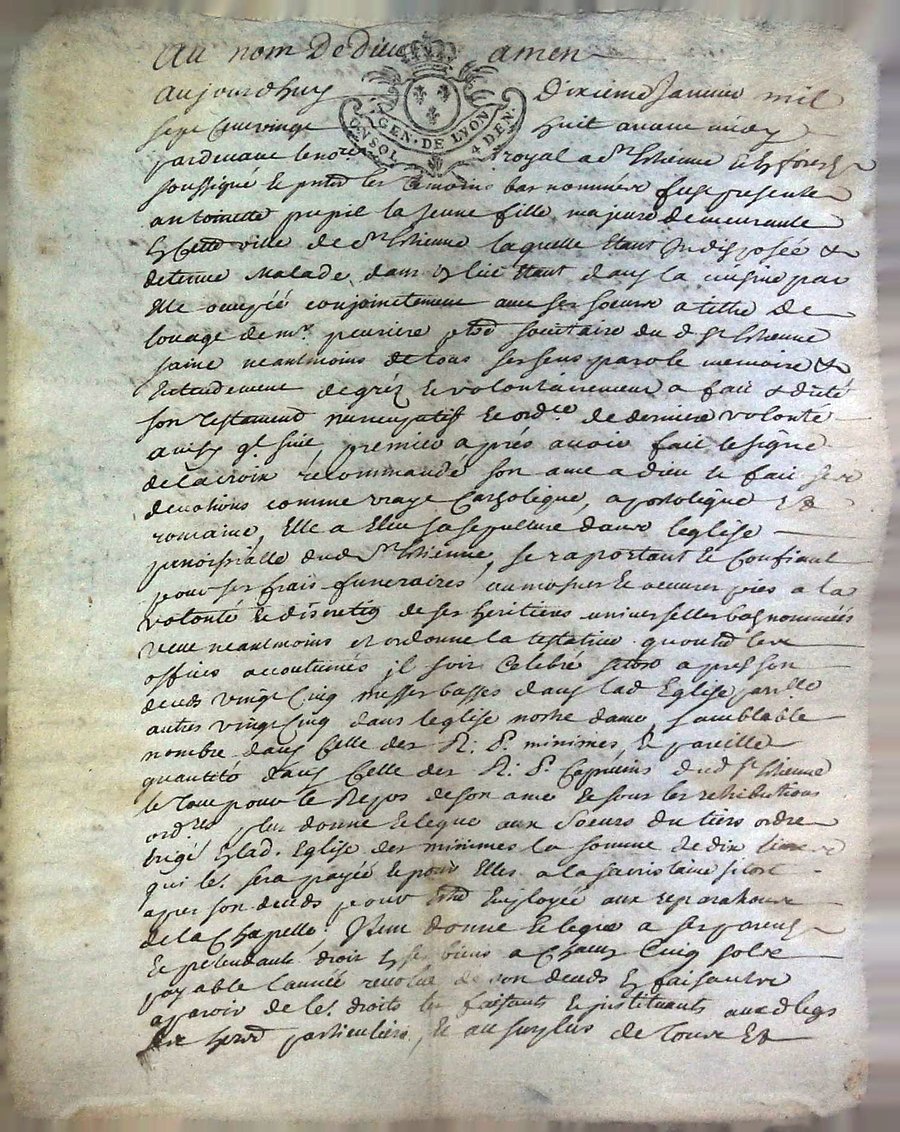 Au nom De dieu amen
aujourdhuy dixieme Janvier mil
sept Quevingt huit avant midy
pardevant le nore royal a St Etienne en forest
GEN. DE LYON
UN SOL 4 DEN.
soussigné et les temoins bas nommés fust presente
antoinette pupil la jeune fille majeure demeurante
en Cette ville de St Etienne laquelle Etant Indisposée &
detenue Malade dans un lit Etant dans la cuisine par
Elle occupée conjointement avec ses soeurs a titre de
louage de mr. peuriere secretaire du d St Etienne
saine neantmoins de tous ses sens parole memoire &
Entendement de gré et volontairement a fait & dicté
son Testament nuncupatif et ordce de derniere volonté
ainsy q. suit premier aprés avoir fait le signe
de la croix recommandé son ame a dieu et fait ses
devotions comme vraye Catholique, apostolique &
romaine, Elle a Eleu sa sepulture dans l'eglise
paroissialle dud St Etienne, se raportant et Confiant
pour ses frais funeraires aumosnes et oeuvres pies a la
volonté et discretion de ses heritieres universelles bas nommées
veut neantmoins et ordonne la testatrice qu'outre les
offices accoutumés il soit Celebré apres son
deceds vingt Cinq messes basses dans lad Eglise
autres vingt Cinq dans l'eglise nostre dame, semblable
nombre dans Celle des R. P. minimes, et pareille
quantité dans Celle des R. P. Capucins dud St Etienne
le Tout pour le Repos de son ame et sous les retributions
ordres donne et legue aux Soeurs du tiers ordre
Erigé en lad. Eglise des minimes la somme de dix livres
qui les. sera payée et pour Elles a la sacristaine sitost
apres son deceds pour Estre Employée aux reparations
de la Chapelle. Item donne et legue a ses parens
et pretendants droit en ses biens a Chacun Cinq sols
payable l'année revolue de son deceds En faisant
apparoir de les. droits les faisant et instituants aux d legs
ses herers particuliers, et au surplus de tous &